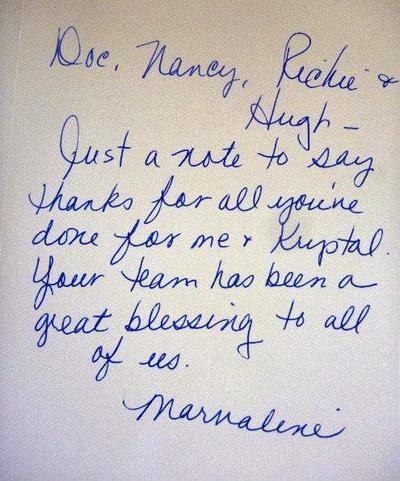 Doc, Nancy, Richie &
Hugh -
Just a note to say
thanks for all you've
done for me & Kryptal.
Your team has been a
great blessing to all
of us.
Marvalene